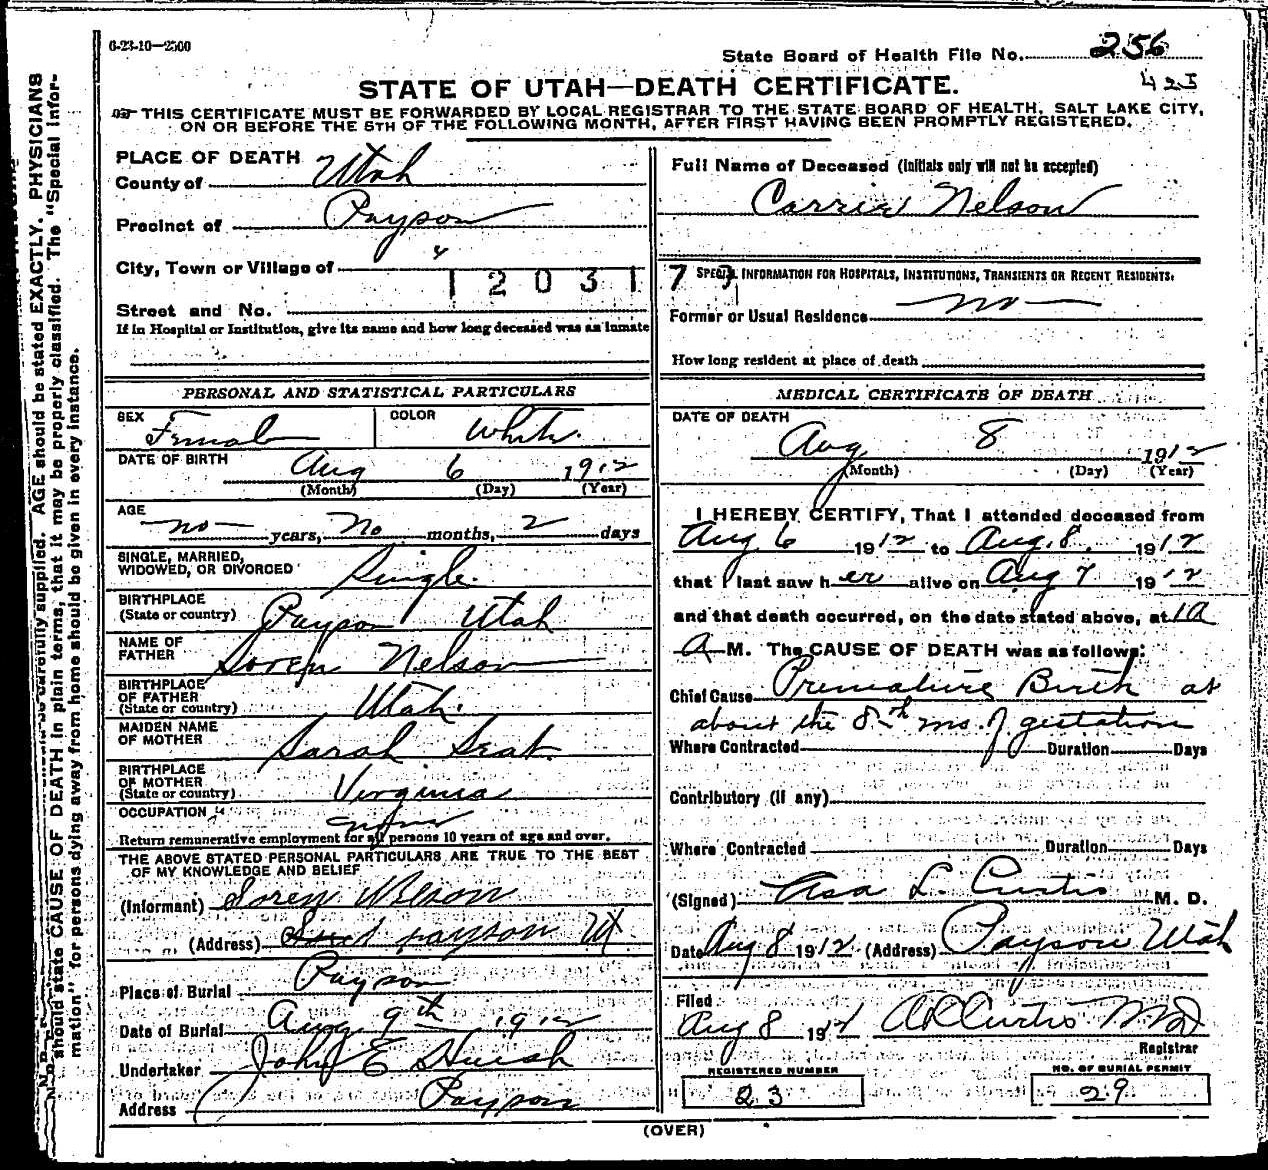 6-23-10—2500
State Board of Health File No. 256
STATE OF UTAH—DEATH CERTIFICATE.
421
THIS CERTIFICATE MUST BE FORWARDED BY LOCAL REGISTRAR TO THE STATE BOARD OF HEALTH, SALT LAKE CITY,
ON OR BEFORE THE 5TH OF THE FOLLOWING MONTH, AFTER FIRST HAVING BEEN PROMPTLY REGISTERED.
PLACE OF DEATH
County of Utah
Precinct of Payson
City, Town or Village of "
1 2 0 3 1
Street and No.
If in Hospital or Institution, give its name and how long deceased was an inmate
Full Name of Deceased (Initials only will not be accepted)
Carrie Nelson
SPECIAL INFORMATION FOR HOSPITALS, INSTITUTIONS, TRANSIENTS OR RECENT RESIDENTS:
Former or Usual Residence no
How long resident at place of death
PERSONAL AND STATISTICAL PARTICULARS
SEX Female COLOR White.
DATE OF BIRTH Aug 6 1912
(Month) (Day) (Year)
AGE
no years, No months, 2 days
SINGLE, MARRIED,
WIDOWED, OR DIVORCED Single.
BIRTHPLACE
(State or country) Payson Utah
NAME OF
FATHER Soren Nelson
BIRTHPLACE
OF FATHER
(State or country) Utah.
MAIDEN NAME
OF MOTHER Sarah Seat.
BIRTHPLACE
OF MOTHER
(State or country) Virginia
OCCUPATION
Return remunerative employment for all persons 10 years of age and over.
THE ABOVE STATED PERSONAL PARTICULARS ARE TRUE TO THE BEST
OF MY KNOWLEDGE AND BELIEF
(Informant) Soren Nelson
(Address) payson Ut.
Place of Burial Payson
Date of Burial Aug 9th 1912
Undertaker John E Huish
Address Payson
MEDICAL CERTIFICATE OF DEATH
DATE OF DEATH
Aug 8 1912
(Month) (Day) (Year)
I HEREBY CERTIFY, That I attended deceased from
Aug 6 1912 to Aug. 8. 1912
that I last saw h er alive on Aug 7 1912
and that death occurred, on the date stated above, at
A M. The CAUSE OF DEATH was as follows:
Chief Cause Premature Birth at
about the 8th mo. of gestation
Where Contracted Duration Days
Contributory (if any)
Where Contracted Duration Days
(Signed) Asa L. Curtis M. D.
Date Aug 8 1912 (Address) Payson Utah
Filed
Aug 8 1912 A L Curtis MD
Registrar
REGISTERED NUMBER
23
NO. OF BURIAL PERMIT
29
(OVER)
carefully supplied. AGE should be stated EXACTLY. PHYSICIANS
should state CAUSE OF DEATH in plain terms, that it may be properly classified. The "Special Infor-
mation" for persons dying away from home should be given in every instance.